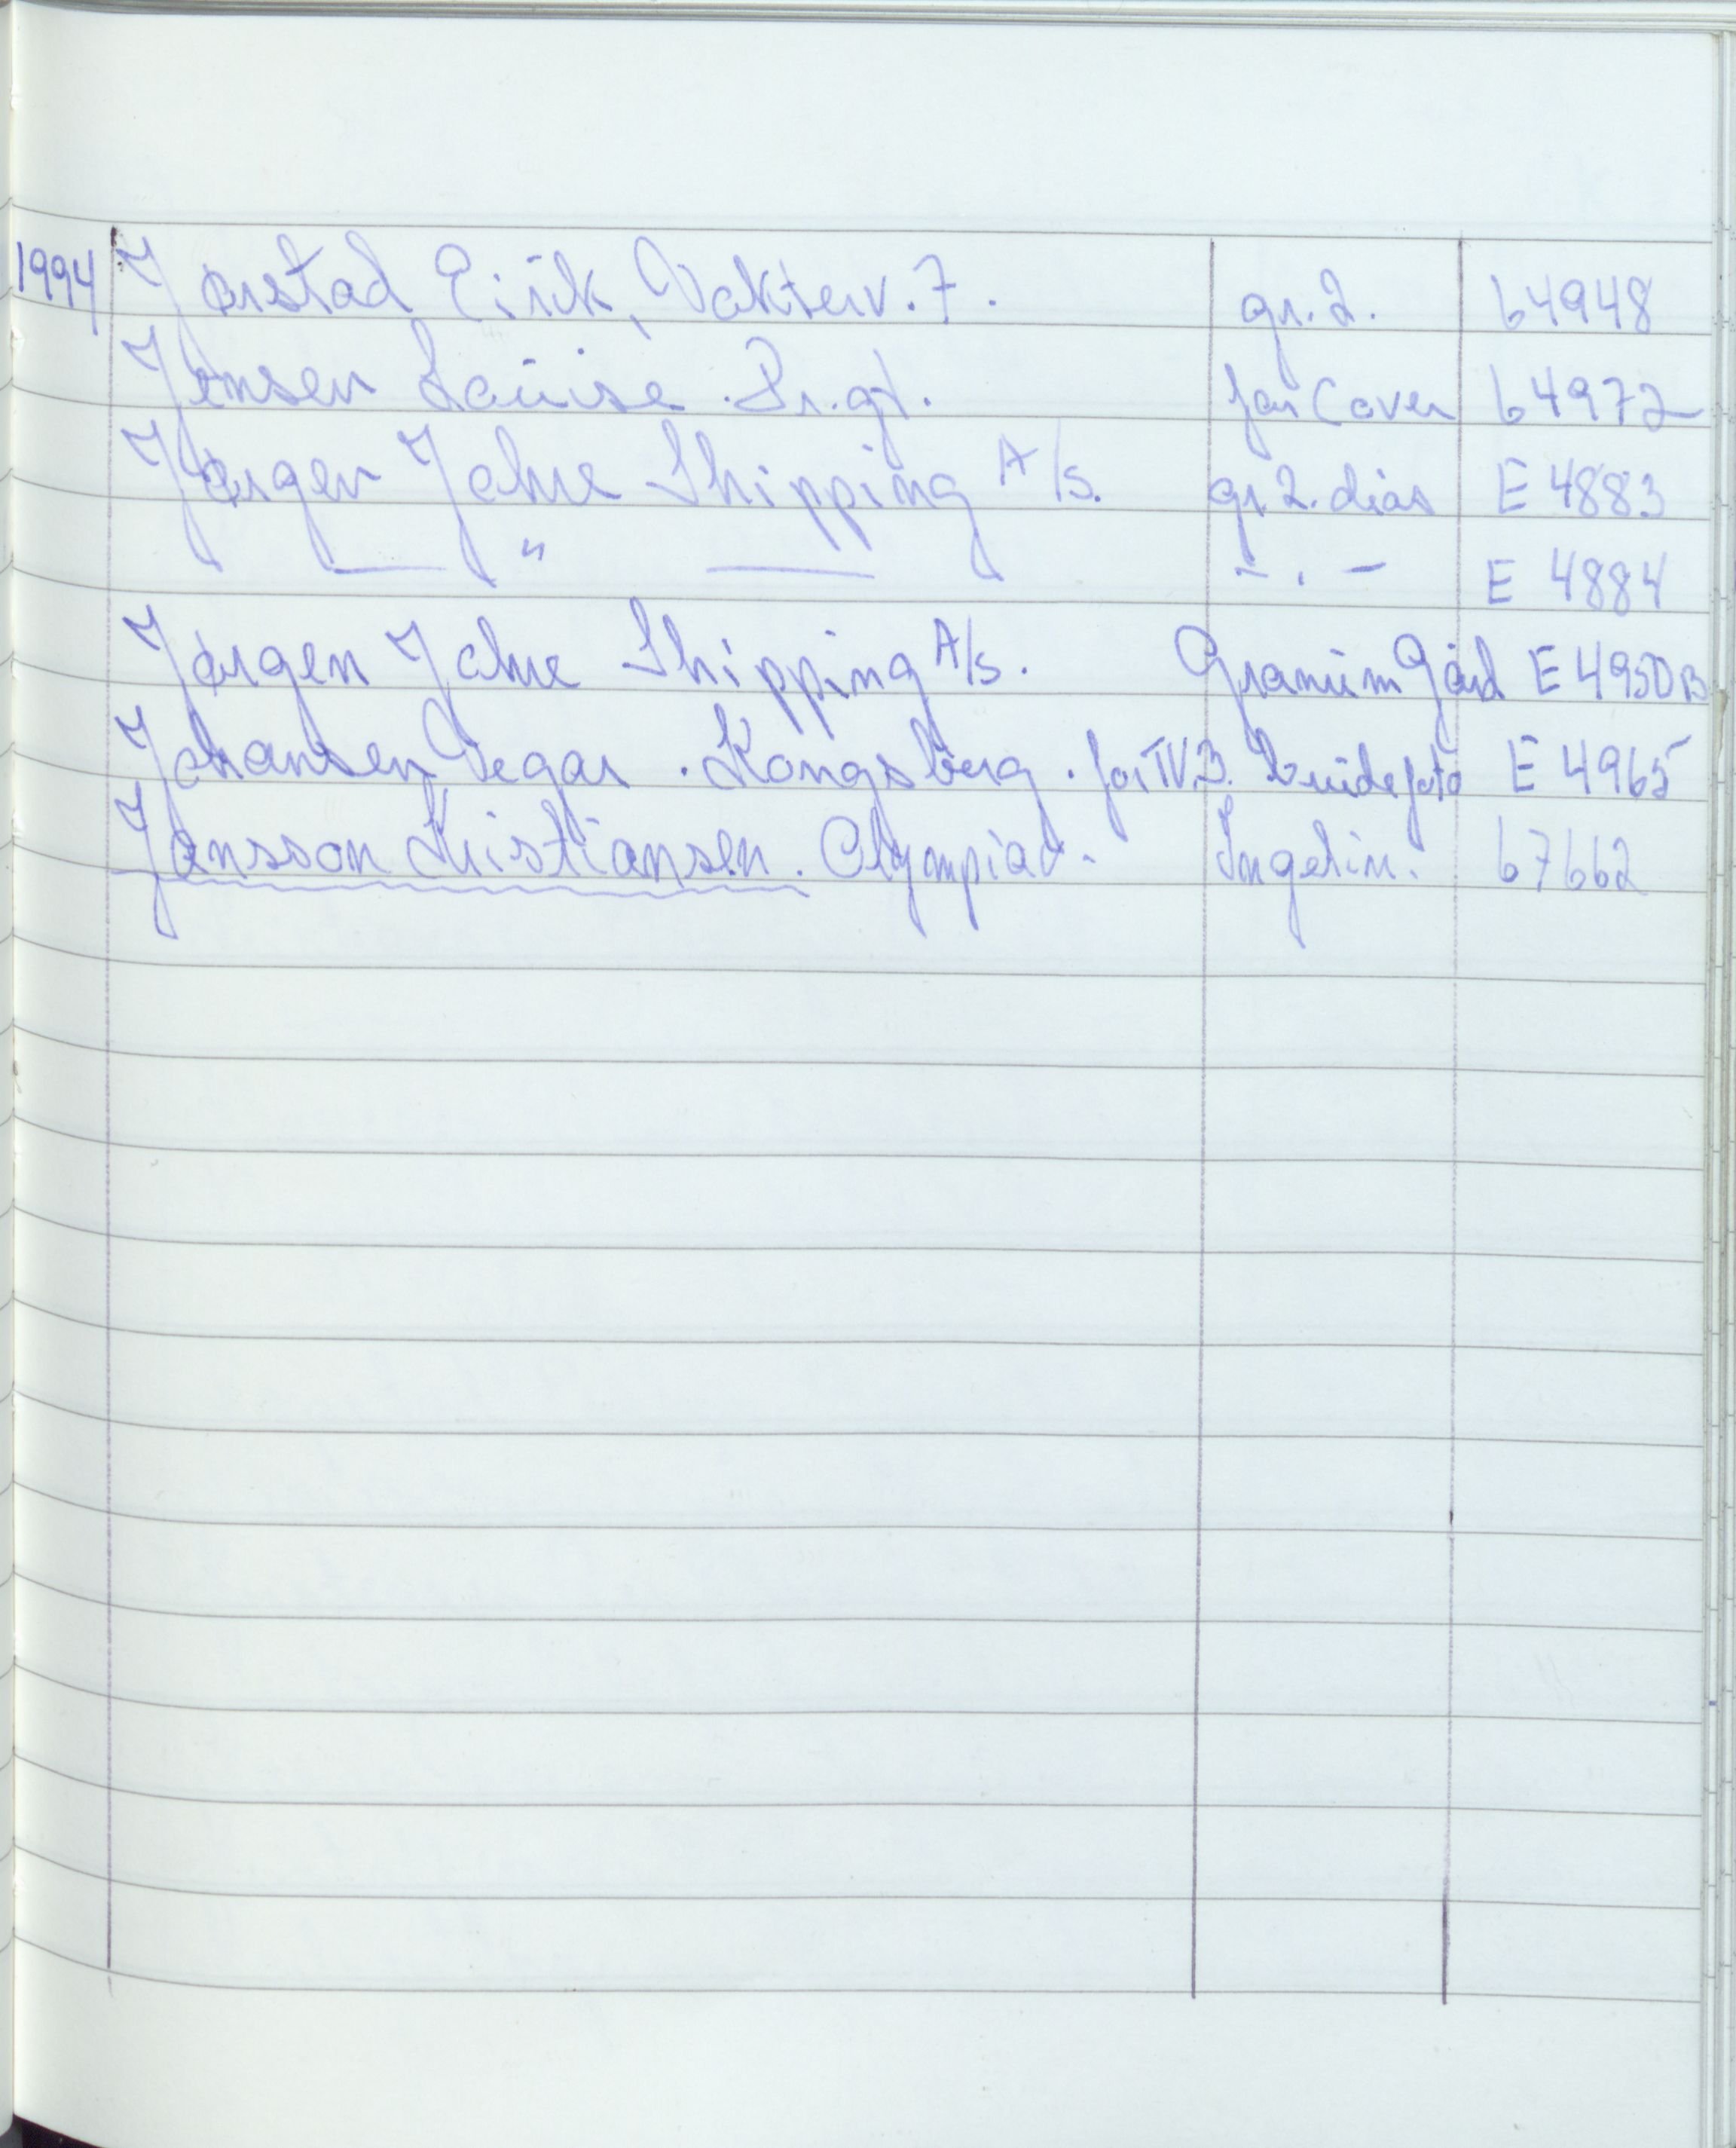 1994 Jørstad Eirik, Vakterv. 7. gr. 2. 64948
Jensen Louise. Br.gt. for Cover 64972
Jørgen Jahre Shipping A/s. gr. 2. dias E 4883
— " — - . - E 4884
Jørgen Jahre Shipping A/s. Granum Gård E 4950 B
Johansen Vegar. Kongsberg. for TV.B. brudefoto E 4965
Jansson Kristiansen. Olympiav. Ingelin. 67662